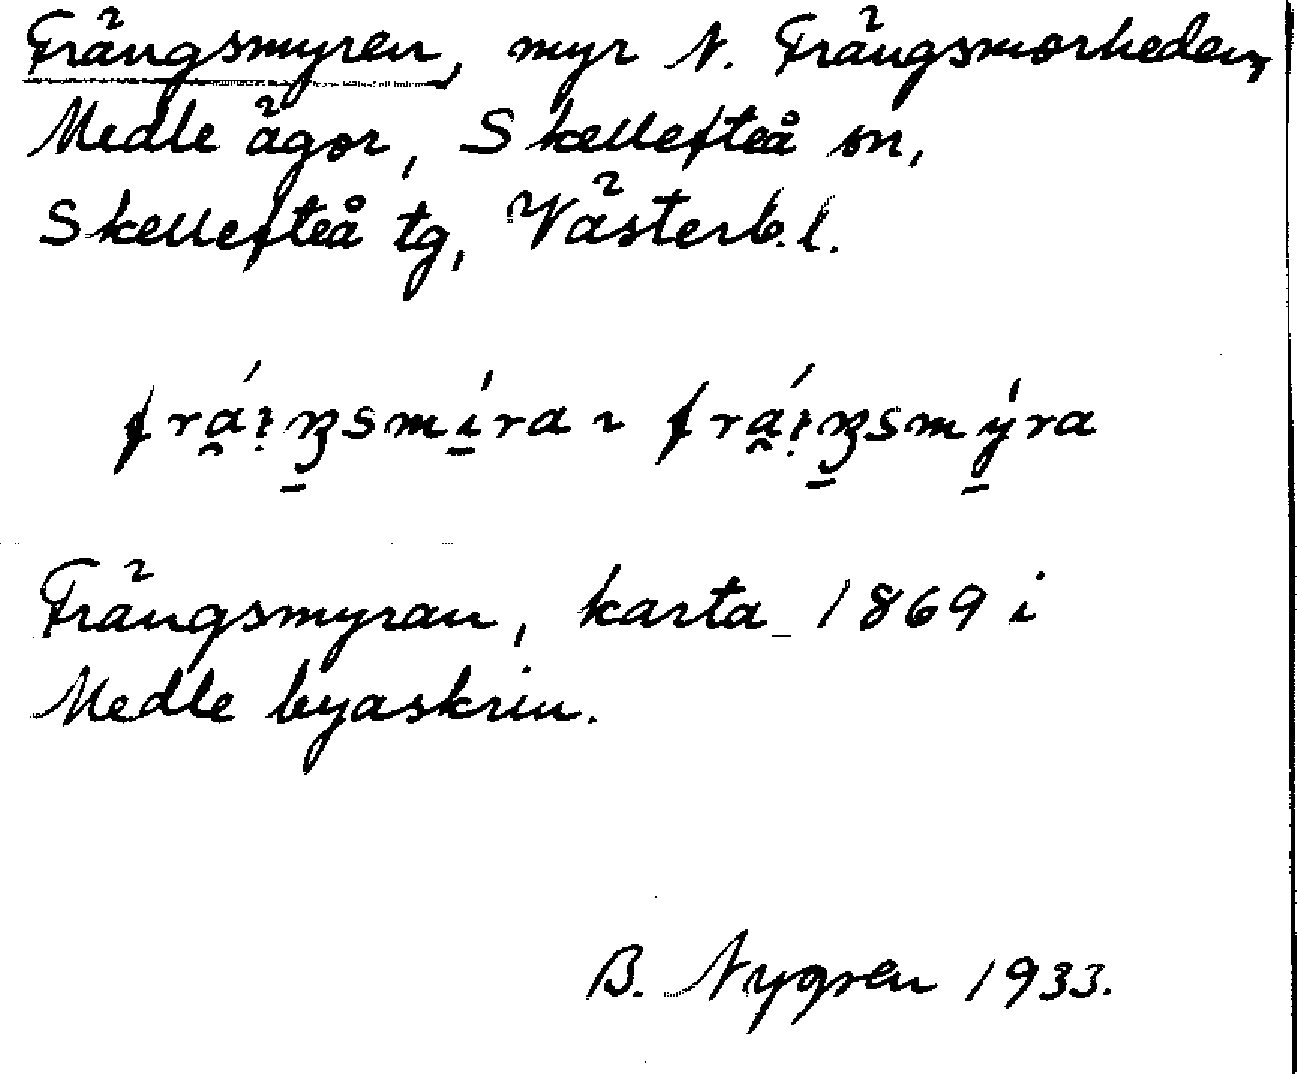 Frängsmyren, myr N. Frängsmorheden,
Medle ägor, Skellefteå sn,
Skellefteå tg, Västerb. l.
frá̯ı̣ŋ̱smí̱ra ~ frá̯ı̣ŋ̱smý̱ra
Frängsmyran, karta 1869 i
Medle byaskrin.
B. Nygren 1933.